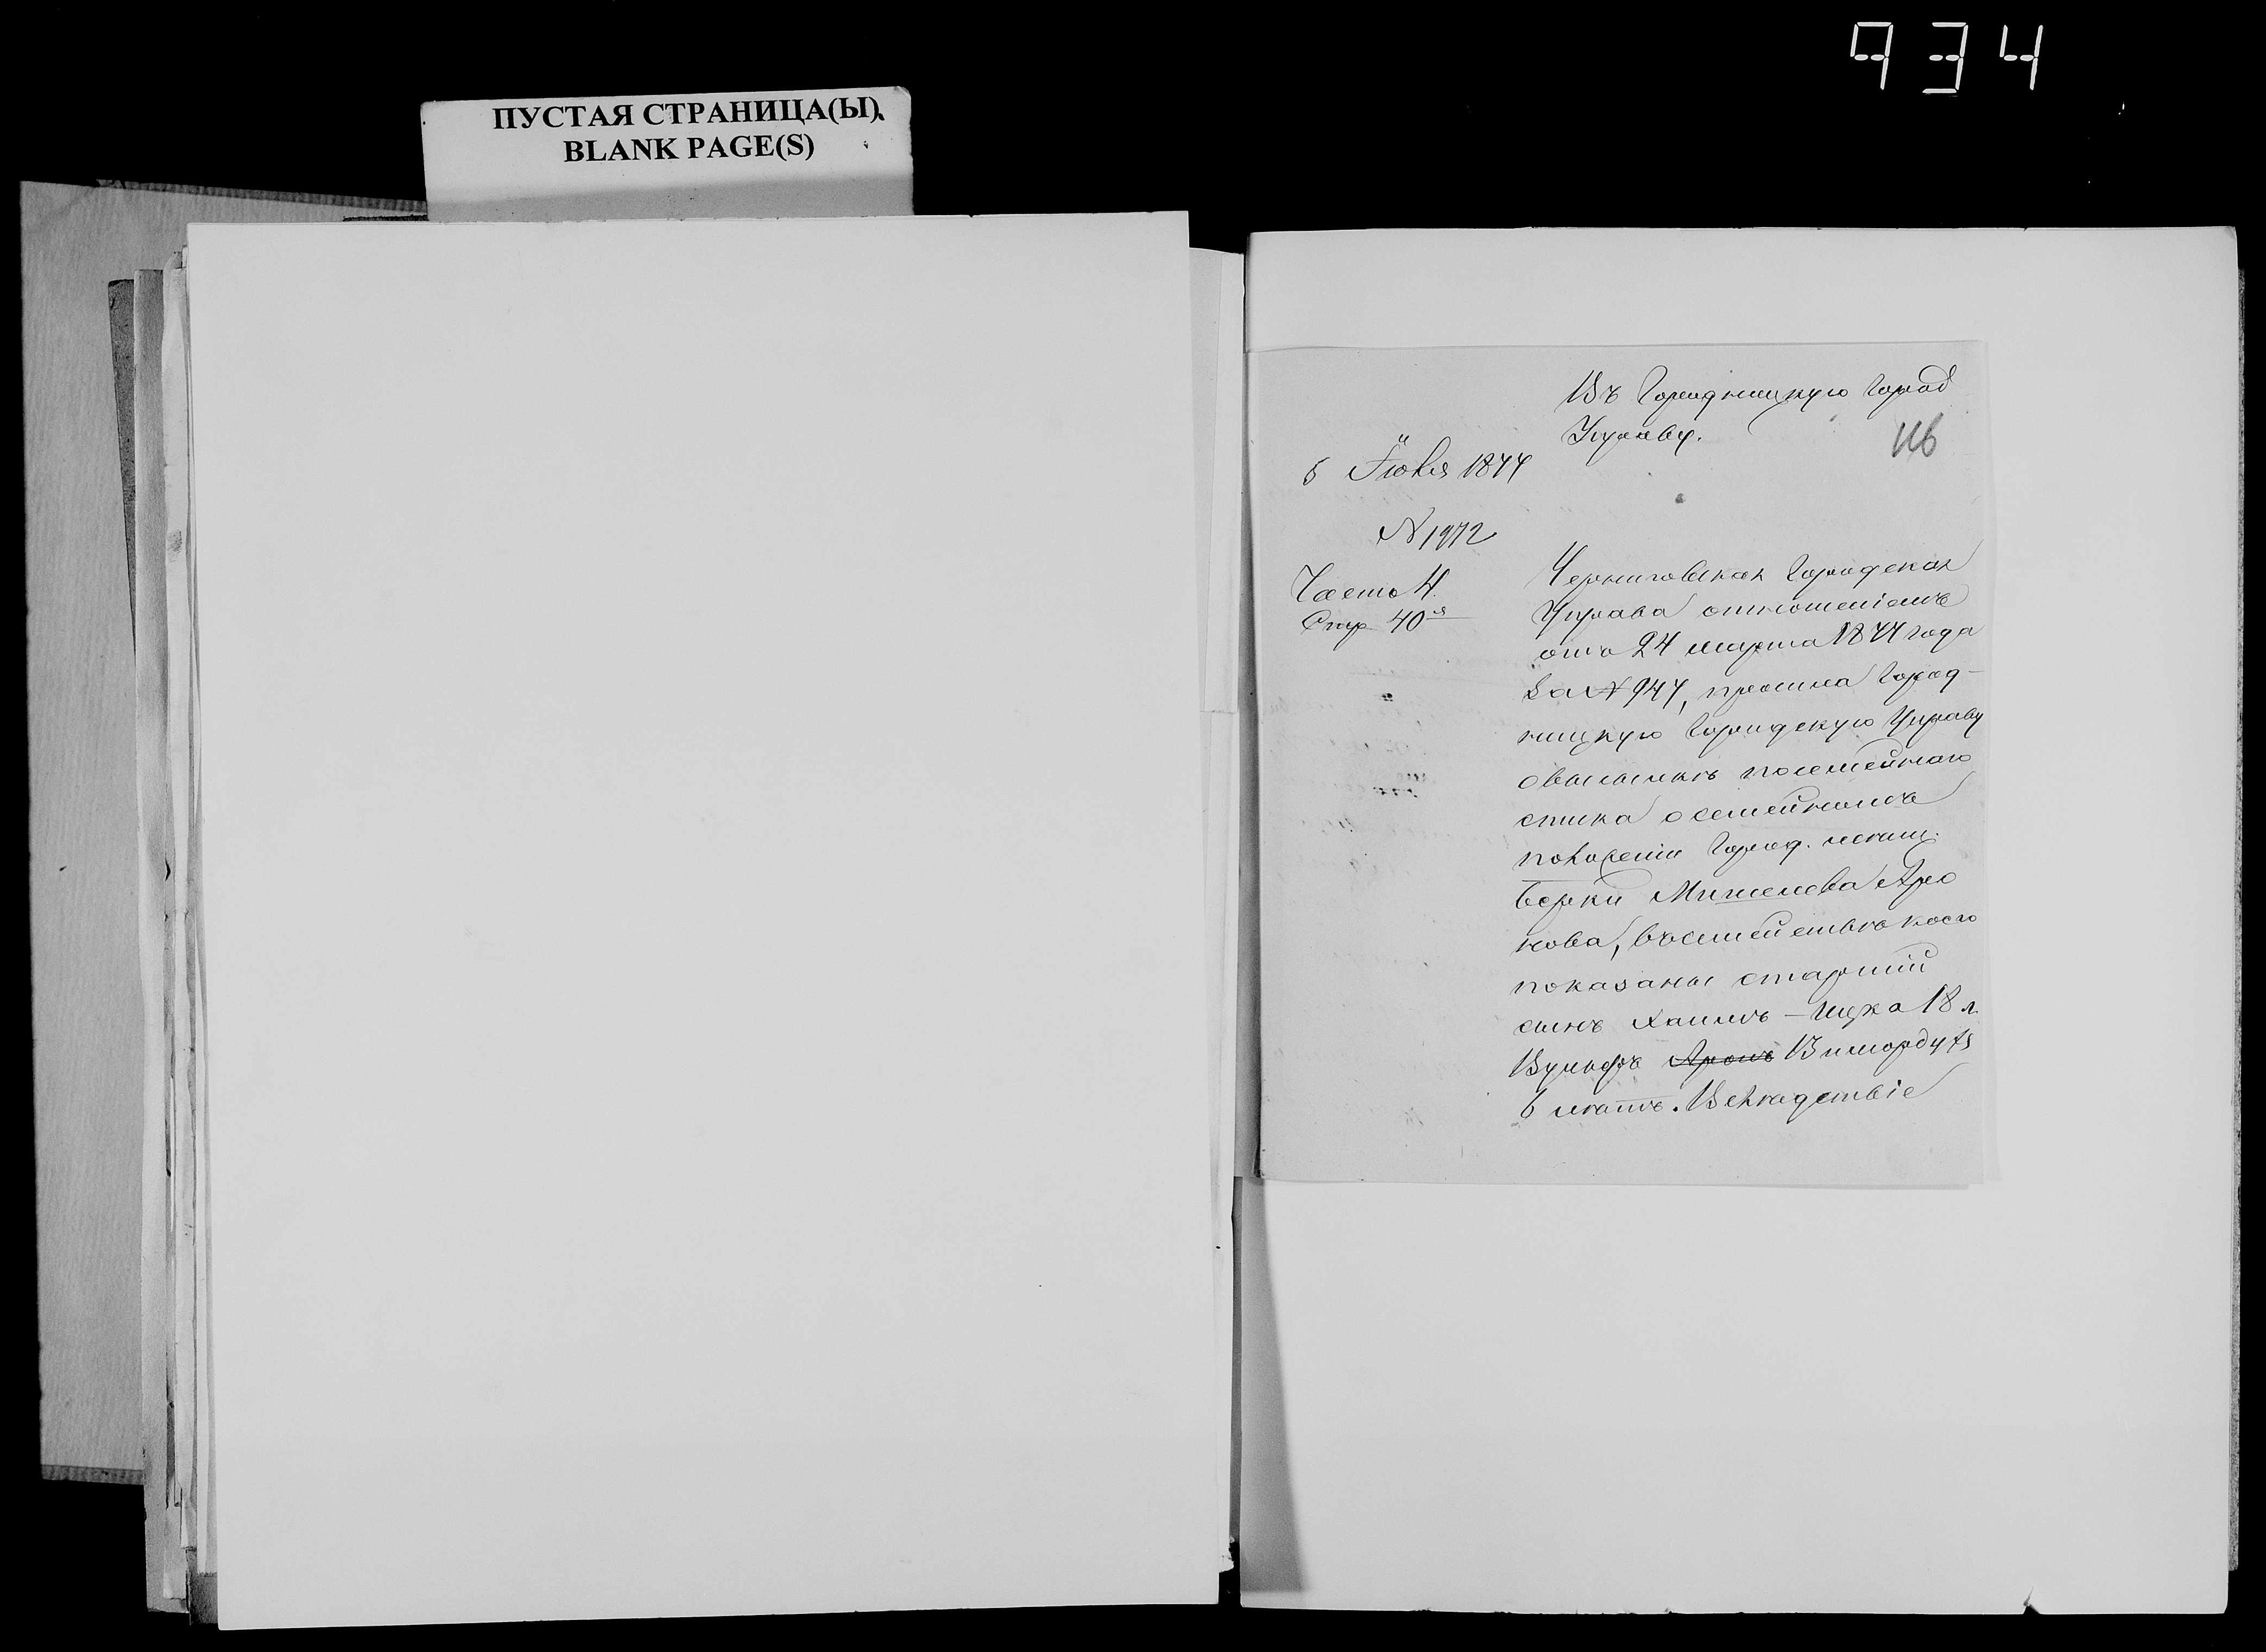 934
ПУСТАЯ СТРАНИЦА(Ы)
BLANK PAGE(S)
Въ Городницкую Город
Управу.
116
5 Іюля 1877
№ 1972
Часть 4.
Стр 40я
Черниговская Городская
Управа отношеніемъ
отъ 24 марта 1877 года
за № 947, просила Город-
ницкую Городскую Управу
о высылкѣ посемейнаго
списка о семейномъ
положеніи Город. мѣщ.
Берки Аро
нова, въ семействѣ коего
показаны старшій
сынъ Хаимъ-Ицка 18 л.
Вульфъ Аронъ
6 лѣтъ. Вслѣдствіе